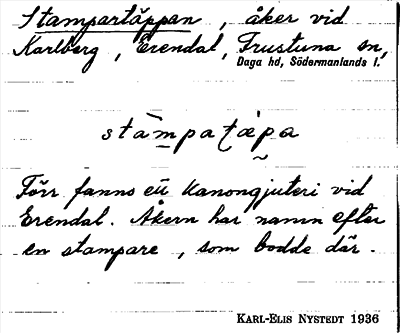 Stampartäppan, åker vid
Karlberg, Erendal, Frustuna sn,
Daga hd, Södermanlands l.
stàm̲pat̯ä́p̰a
Förr fanns ett kanongjuteri vid
Erendal. Åkern har namn efter
en stampare, som bodde där.
KARL-ELIS NYSTEDT 1936